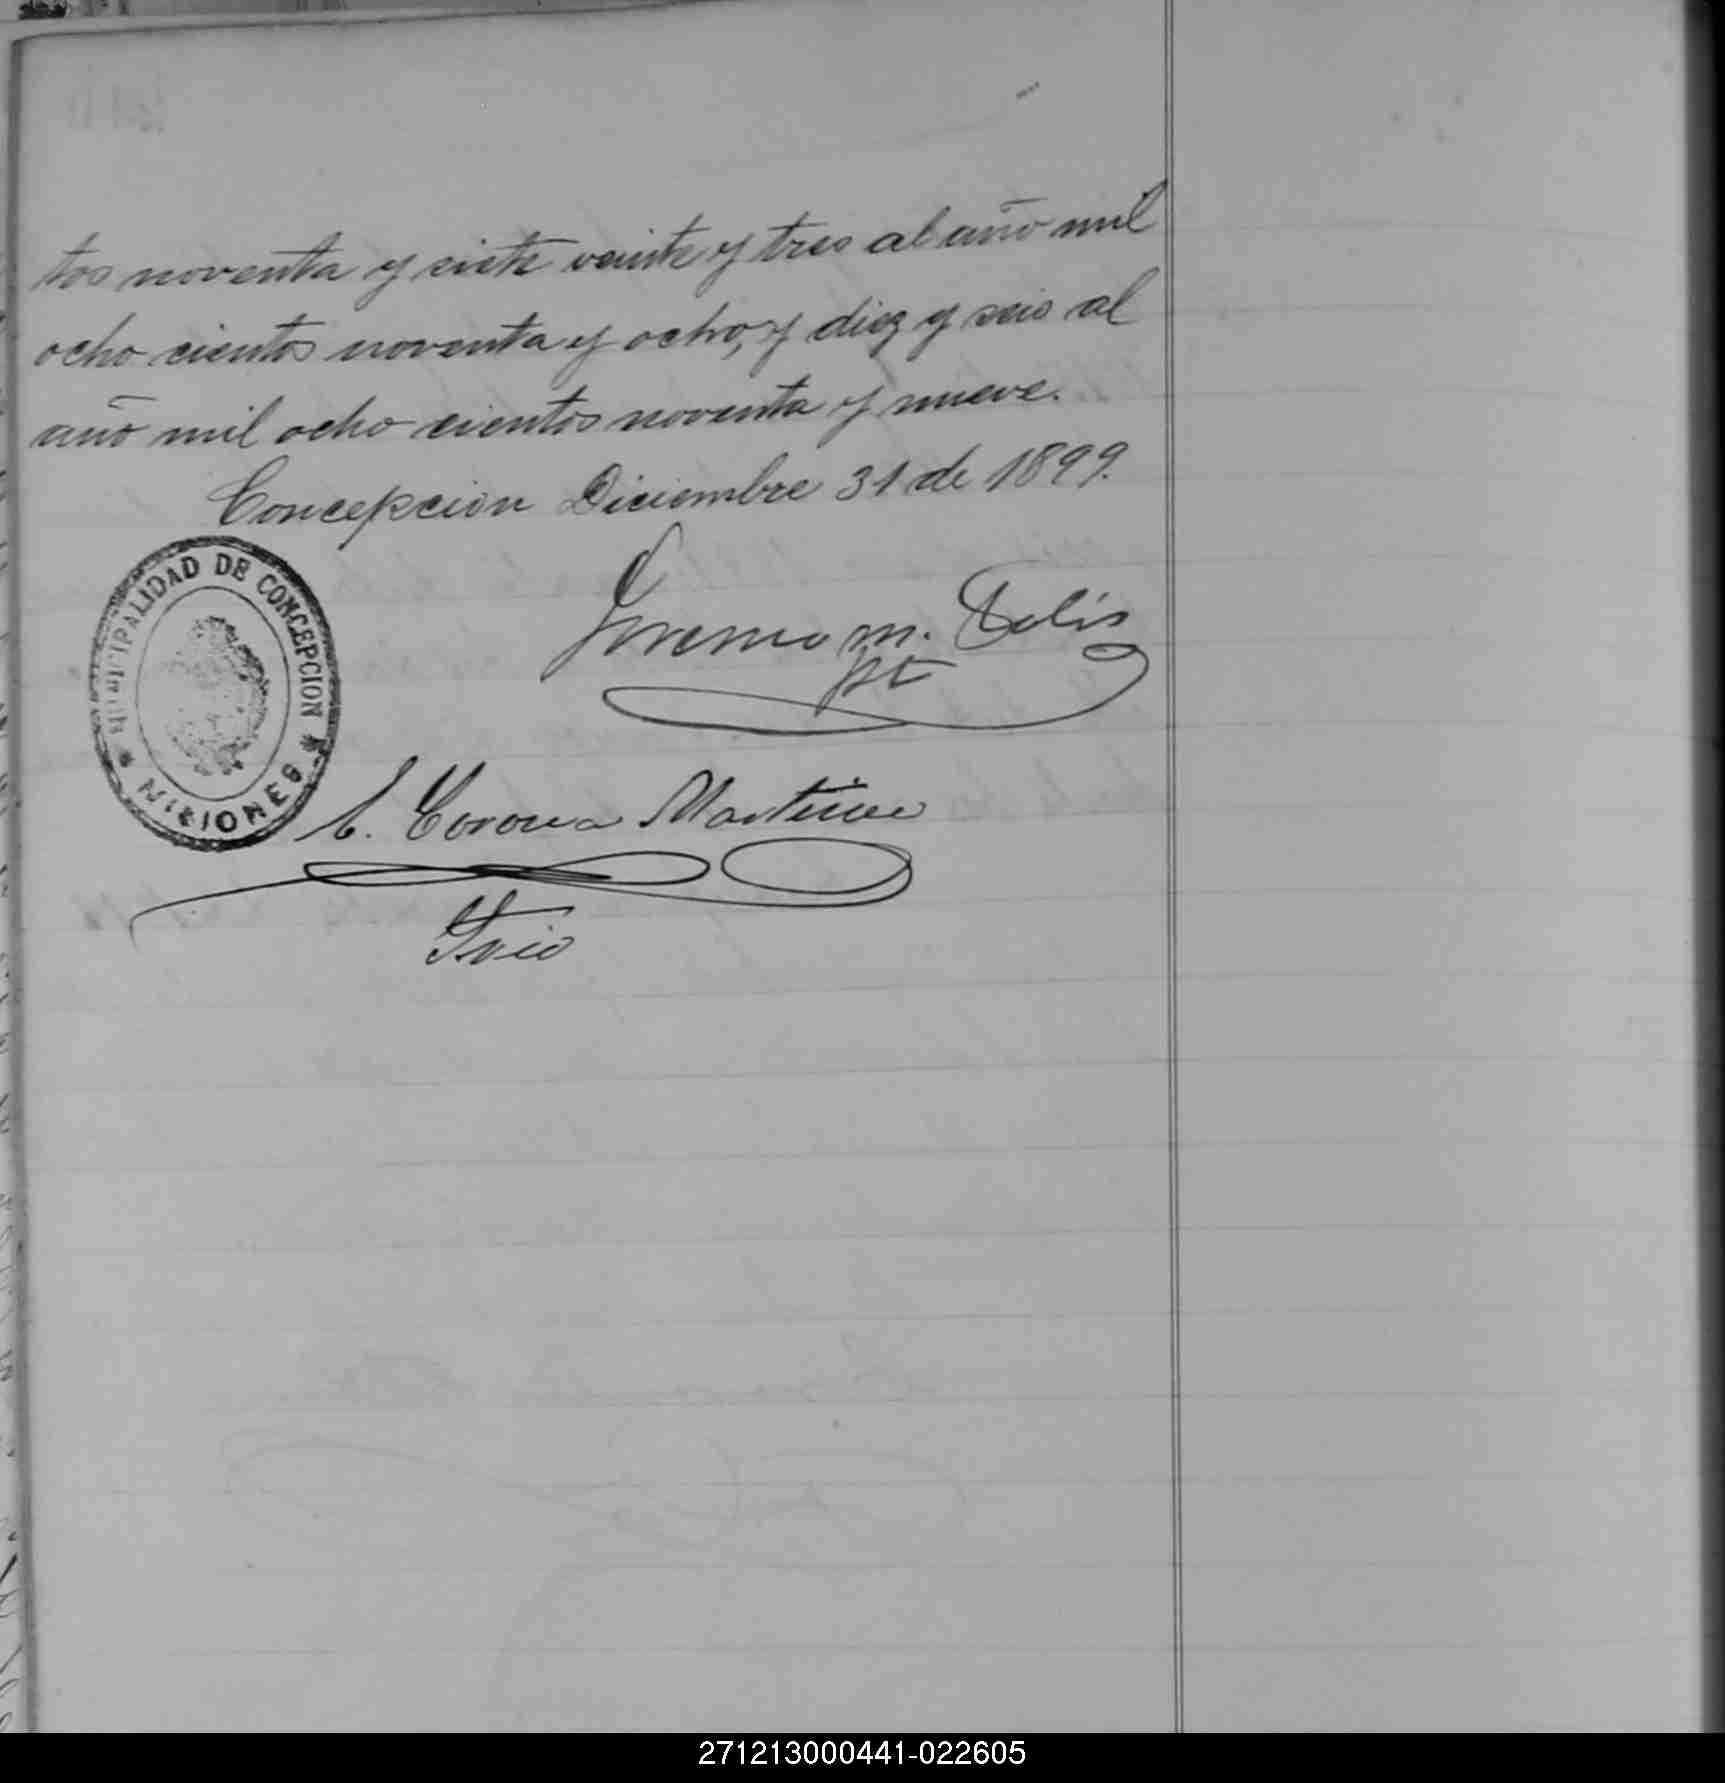 tos noventa y siete veinte y tres al año mil
ocho cientos noventa y ocho, y diez y seis al
año mil ocho cientos noventa y nueve.
Concepcion Diciembre 31 de 1899.
MUNICIPALIDAD DE CONCEPCION
MISIONES
m. Solis
C. Corona Martinez
Srio
271213000441-022605